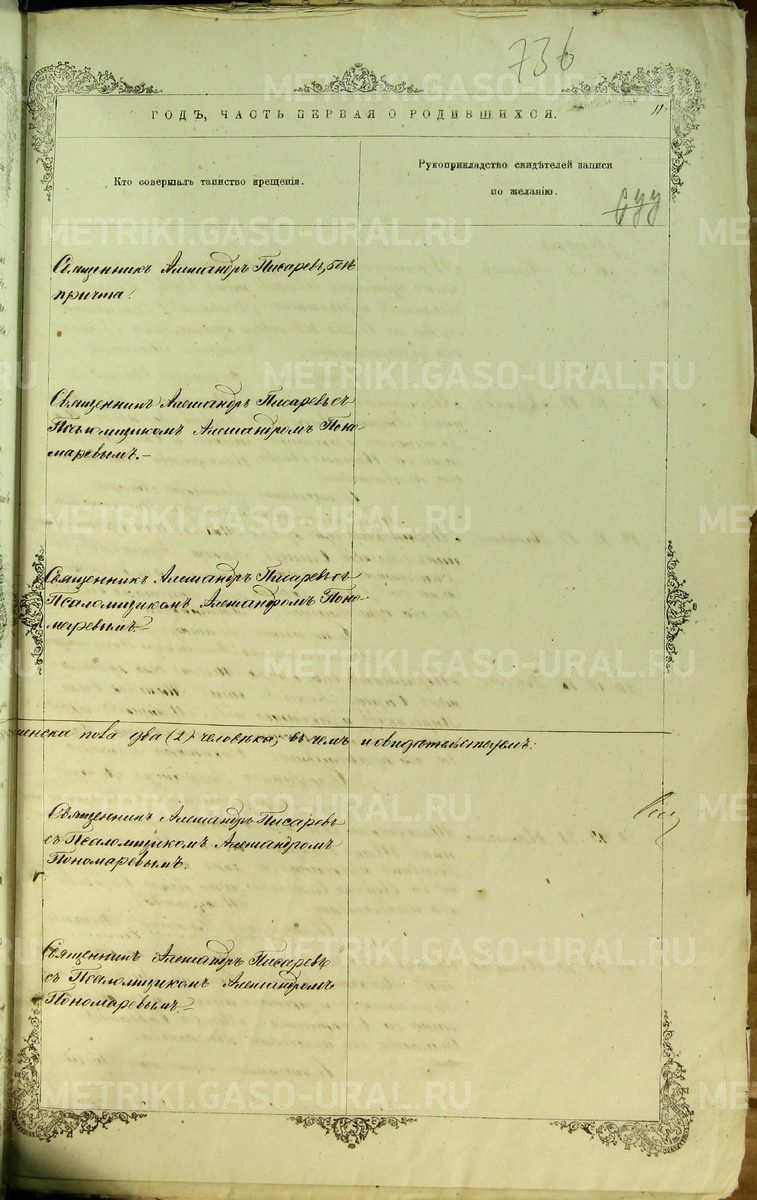 736
11
ГОДЪ, ЧАСТЬ ПЕРВАЯ О РОДИВШИХСЯ.
Кто совершалъ таинство крещенія.
Рукоприкладство свидѣтелей записи
по желанію.
Священникъ Александръ Писаревъ, безъ
причта.
Священникъ Александръ Писаревъ съ
Псаломщикомъ Александромъ Поно-
маревымъ.-
Священникъ Александръ Писаревъ съ
Псаломщикомъ Александромъ Поно-
маревымъ.-
женска пола два (2) человѣка; въ чемъ и свидѣтельствуемъ:
Священникъ Александръ Писаревъ
съ Псаломщикомъ Александромъ
Пономаревымъ.
Священникъ Александръ Писаревъ
съ Псаломщикомъ Александромъ
Пономаревымъ.-
METRIKI.GASO-URAL.RU